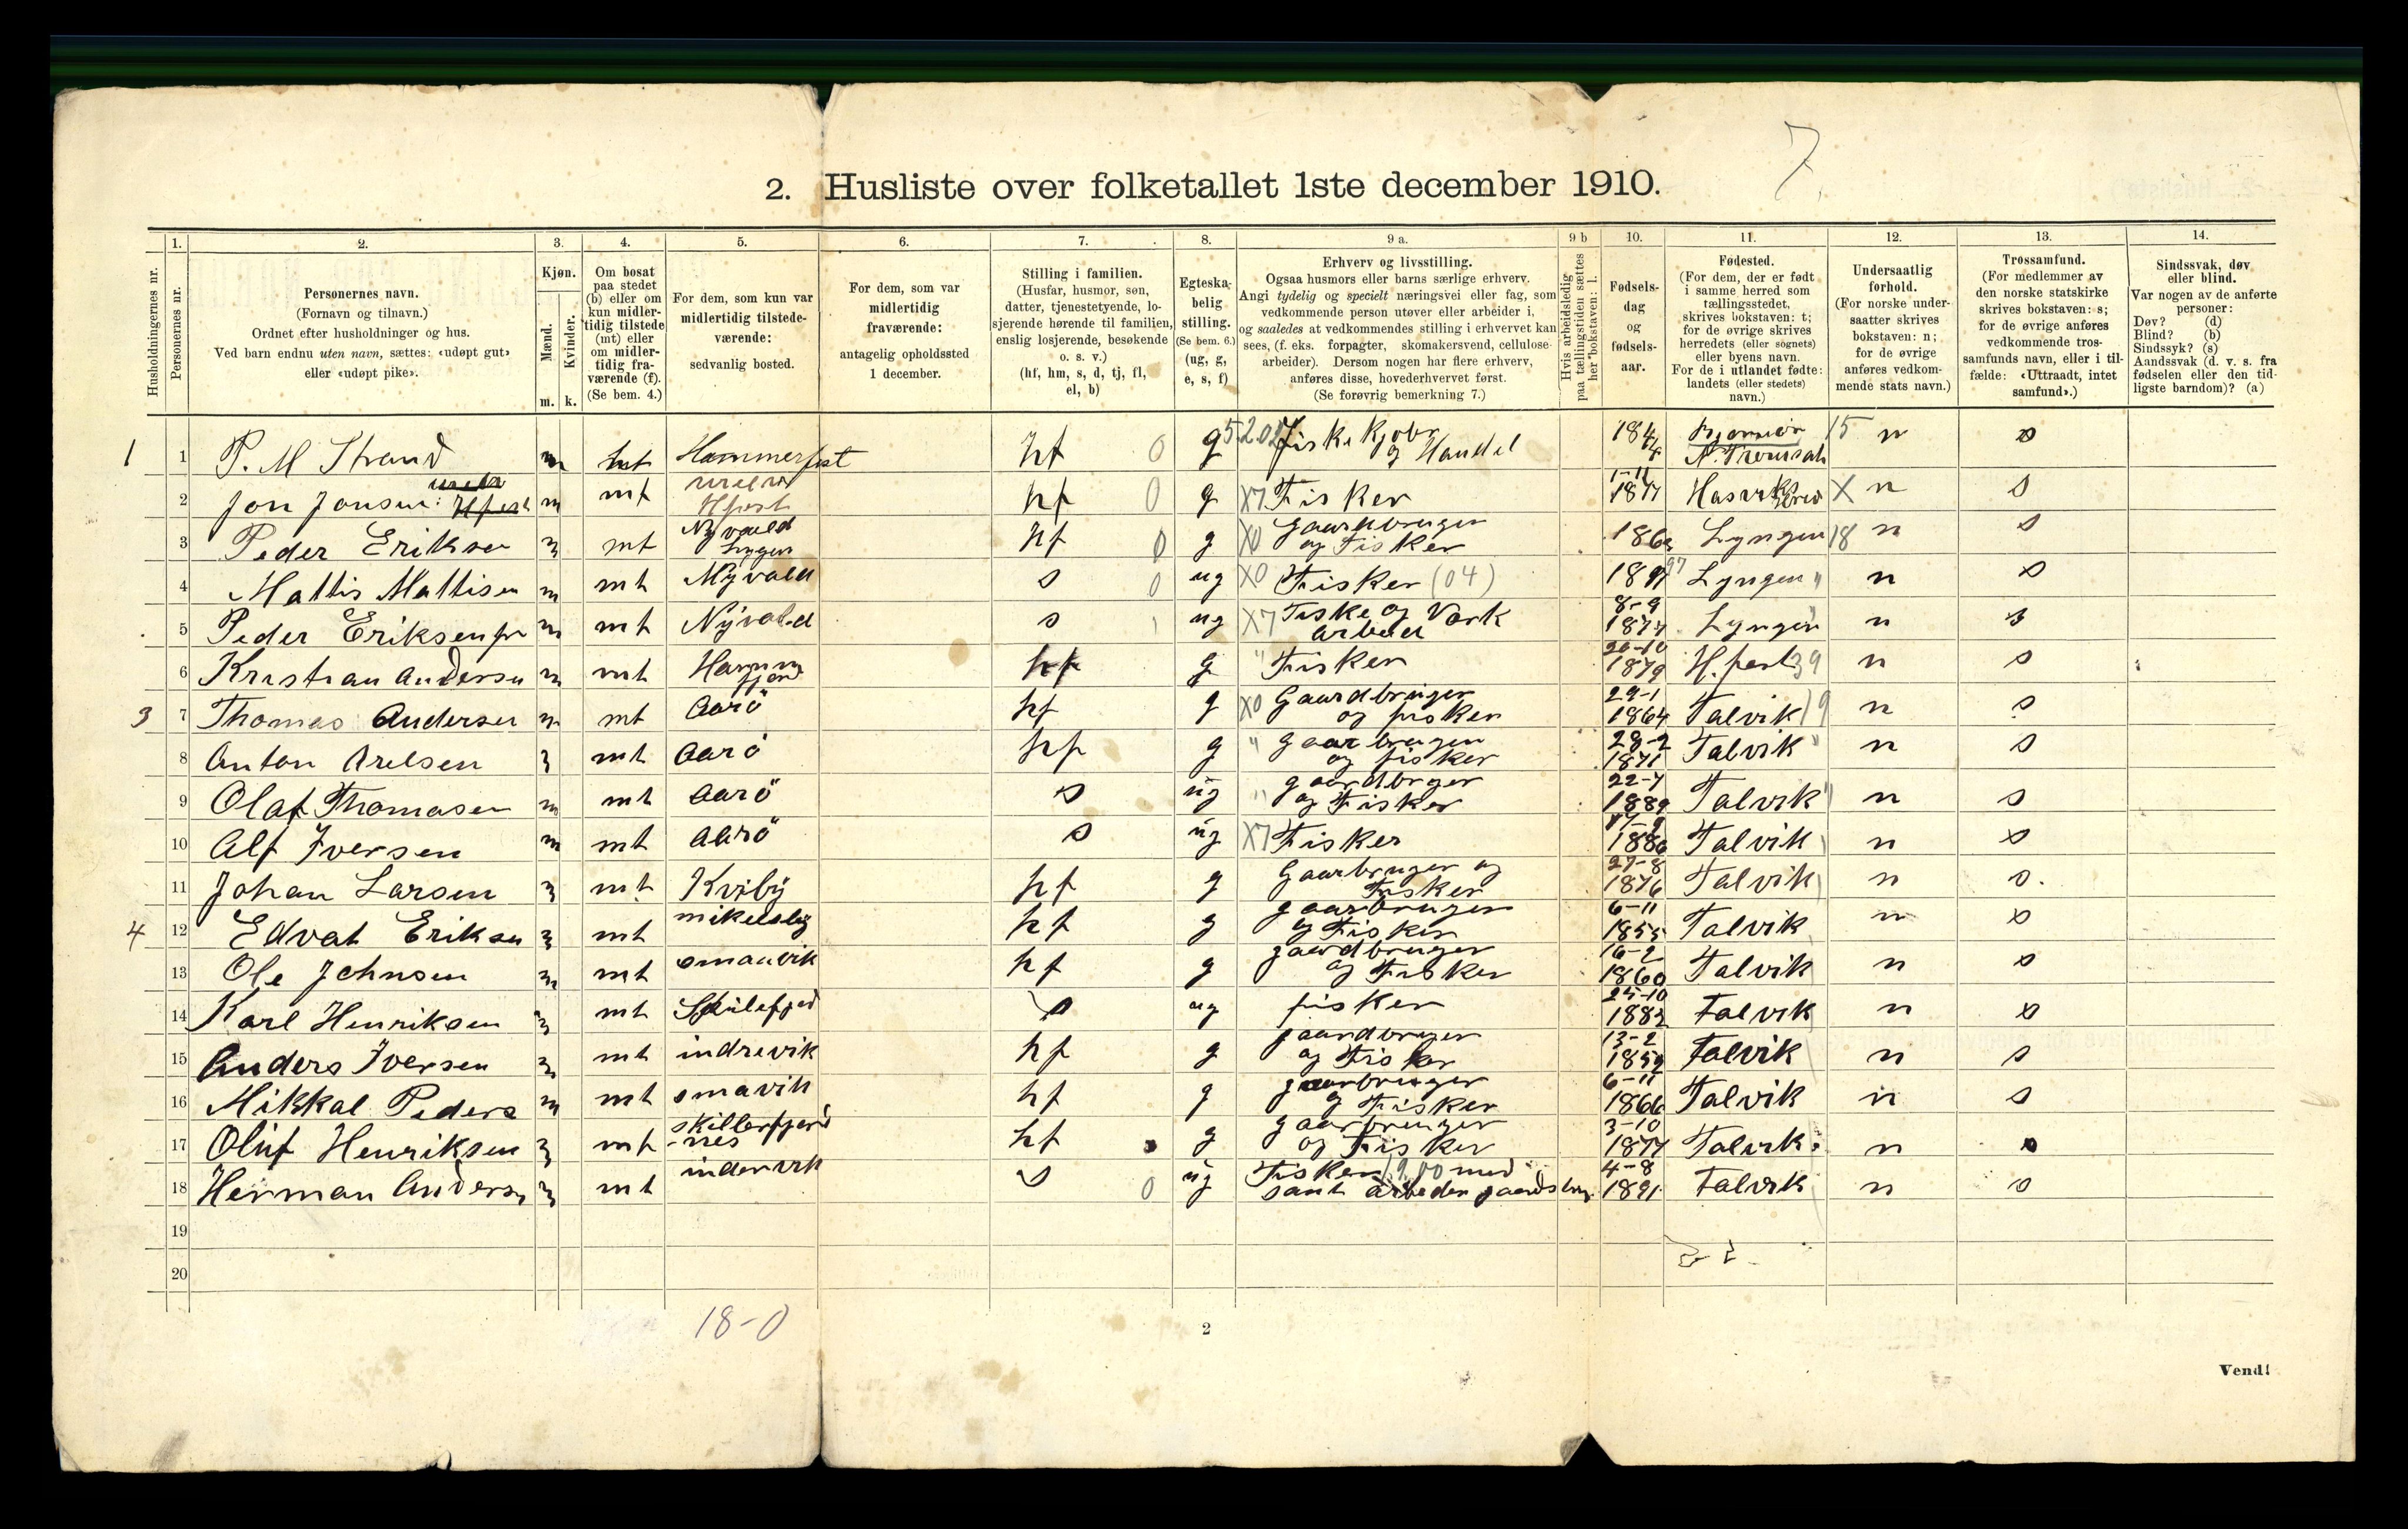 7.
2. Husliste over folketallet 1ste december 1910.
1. 2. 3. 4. 5. 6. 7. 8. 9 a. 9 b 10. 11. 12. 13. 14.
Husholdningernes nr.
Personernes nr.
Personernes navn.
(Fornavn og tilnavn.)
Ordnet efter husholdninger og hus.
Ved barn endnu uten navn, sættes: «udøpt gut»
eller «udøpt pike».
Kjøn.
Mænd.
Kvinder.
m. k.
Om bosat
paa stedet
(b) eller om
kun midler-
tidig tilstede
(mt) eller
om midler-
tidig fra-
værende (f).
(Se bem. 4.)
For dem, som kun var
midlertidig tilstede-
værende:
sedvanlig bosted.
For dem, som var
midlertidig
fraværende:
antagelig opholdssted
1 december.
Stilling i familien.
(Husfar, husmor, søn,
datter, tjenestetyende, lo-
sjerende hørende til familien,
enslig losjerende, besøkende
o. s. v.)
(hf, hm, s, d, tj, fl,
el, b)
Egteska-
belig
stilling.
(Se bem. 6.)
(ug, g,
e, s, f)
Erhverv og livsstilling.
Ogsaa husmors eller barns særlige erhverv.
Angi tydelig og specielt næringsvei eller fag, som
vedkommende person utøver eller arbeider i,
og saaledes at vedkommendes stilling i erhvervet kan
sees, (f. eks. forpagter, skomakersvend, cellulose-
arbeider). Dersom nogen har flere erhverv,
anføres disse, hovederhvervet først.
(Se forøvrig bemerkning 7.)
Hvis arbeidsledig
paa tællingstiden sættes
her bokstaven: l.
Fødsels-
dag
og
fødsels-
aar.
Fødested.
(For dem, der er født
i samme herred som
tællingsstedet,
skrives bokstaven: t;
for de øvrige skrives
herredets (eller sognets)
eller byens navn.
For de i utlandet fødte:
landets (eller stedets)
navn.)
Undersaatlig
forhold.
(For norske under-
saatter skrives
bokstaven: n;
for de øvrige
anføres vedkom-
mende stats navn.)
Trossamfund.
(For medlemmer av
den norske statskirke
skrives bokstaven: s;
for de øvrige anføres
vedkommende tros-
samfunds navn, eller i til-
fælde: «Uttraadt, intet
samfund».)
Sindssvak, døv
eller blind.
Var nogen av de anførte
personer:
Døv? (d)
Blind? (b)
Sindssyk? (s)
Aandssvak (d. v. s. fra
fødselen eller den tid-
ligste barndom)? (a)
1 1 P. M Strand m mt Hammerfest hf 0 g Fiske Kjøbr og Handel N. Tromsøh 15 n s
2 Jon Jonsen: m mt Hfest hf 0 g X7 Fisker 1-11 1877 Hasvik X n s
3 Peder Eriksen m mt Nyvold Lyngen hf 0 g X0 Gaardbruger og Fisker 186 Lyngen 18 n s
4 Mattis Mattisen m mt Nyvold s 0 ug X0 Fisker (04) Lyngen " n s
5 Peder Eriksen jr m mt Nyvold s ug X7 Fiske og Værk arbeid 8-9 1877 Lyngen n s
6 Kristian Andersen m mt hf g " Fisker 20-10 1879 H.fest 39 n s
3 7 Thomas Andersen m mt Aarö hf g X0 Gaardbruger og fisker 29-1 1864 Talvik 19 n s
8 Anton Arelsen m mt Aarö hf g " gaarbruger og fisker 28-2 1871 Talvik " n s
9 Olaf Thomasen m mt Aarö s ug " gaardbrger og Fisker 22-7 1889 Talvik " n s
10 Alf Iversen m mt Aarö s ug X7 Fisker 1886 Talvik n s
11 Johan Larsen m mt Kviby hf g Gaarbruger og Fisker 27-8 1876 Talvik n s.
4 12 Edvat Eriksen m mt mikelsby hf g gaarbruger og Fisker 6-11 1855 Talvik n s
13 Ole Johnsen m mt smauvik hf g gaardbruger og Fisker 16-2 1860 Talvik n s
14 Karl Henriksen m mt s ug fisker 25-10 1882 Talvik n s
15 Anders Iversen m mt indrevik hf g gaardbruger og Fisker 13-2 1859 Talvik n s
16 Mikkal Peders m mt smavik hf g gaarbruger og Fisker 6-11 1866 Talvik n s
17 Oluf Henriksen m mt skillerfjord -nes hf g gaarbruger og Fisker 3-10 1877 Talvik n s
18 Herman Andersen m mt indervik s 0 ug Fisker 19,00 med samt arbeder gaardsbrug 4-8 1891 Talvik n s
19
20
18-0
2
Vend!